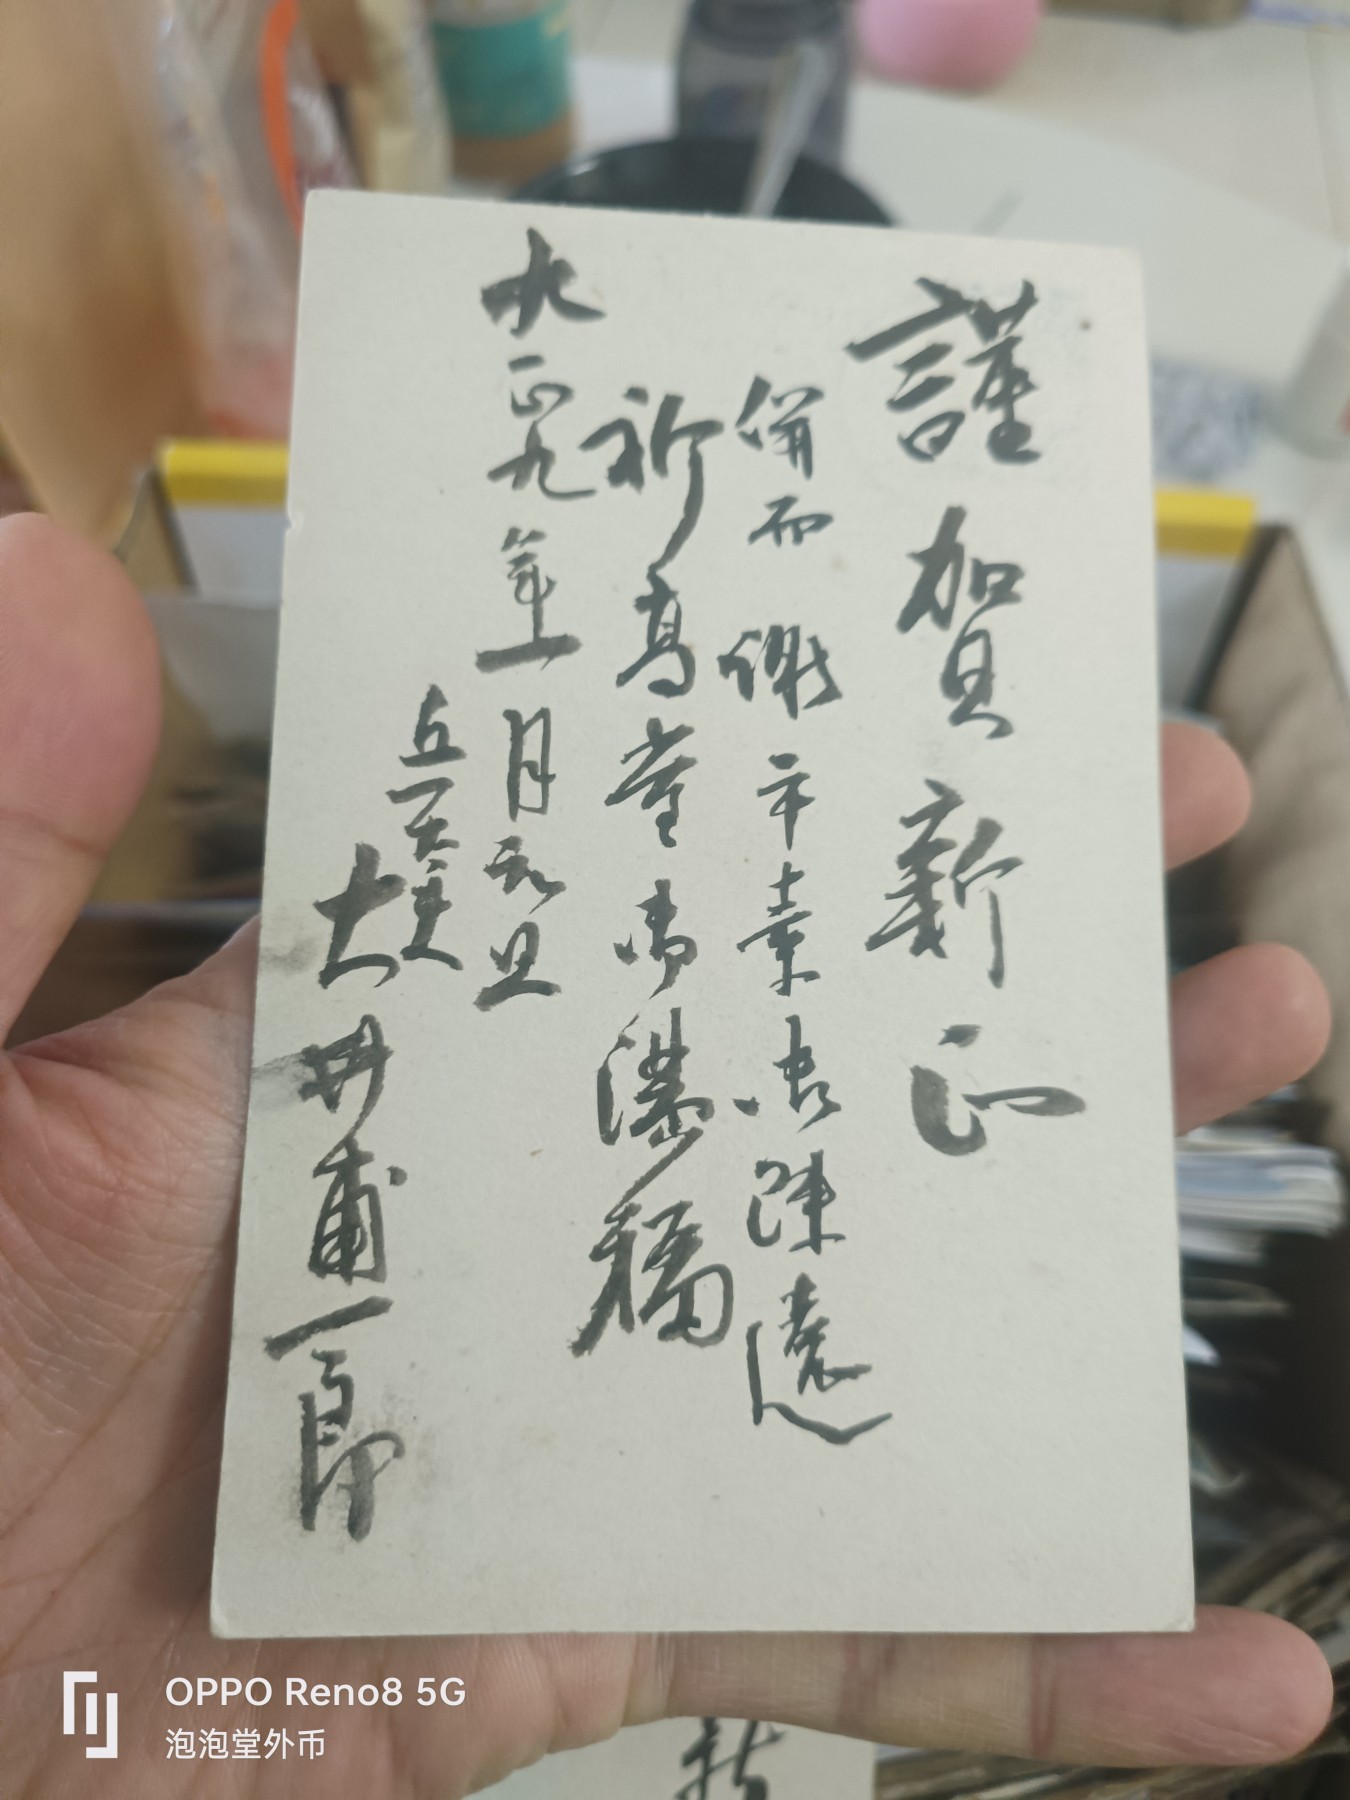 謹賀新正
併而謝平素御疎遠
祈高堂御満福
大正九年一月元旦
大井甫一郎
OPPO Reno8 5G
泡泡堂外币